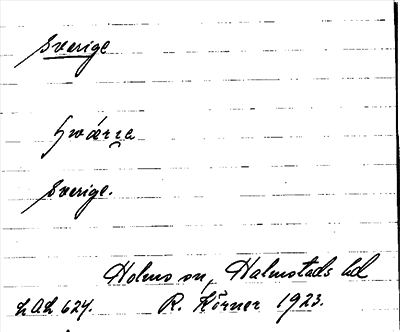 Sverige
Sverige.
Holms sn, Halmstads hd
LAL 624. R. Körner 1923.